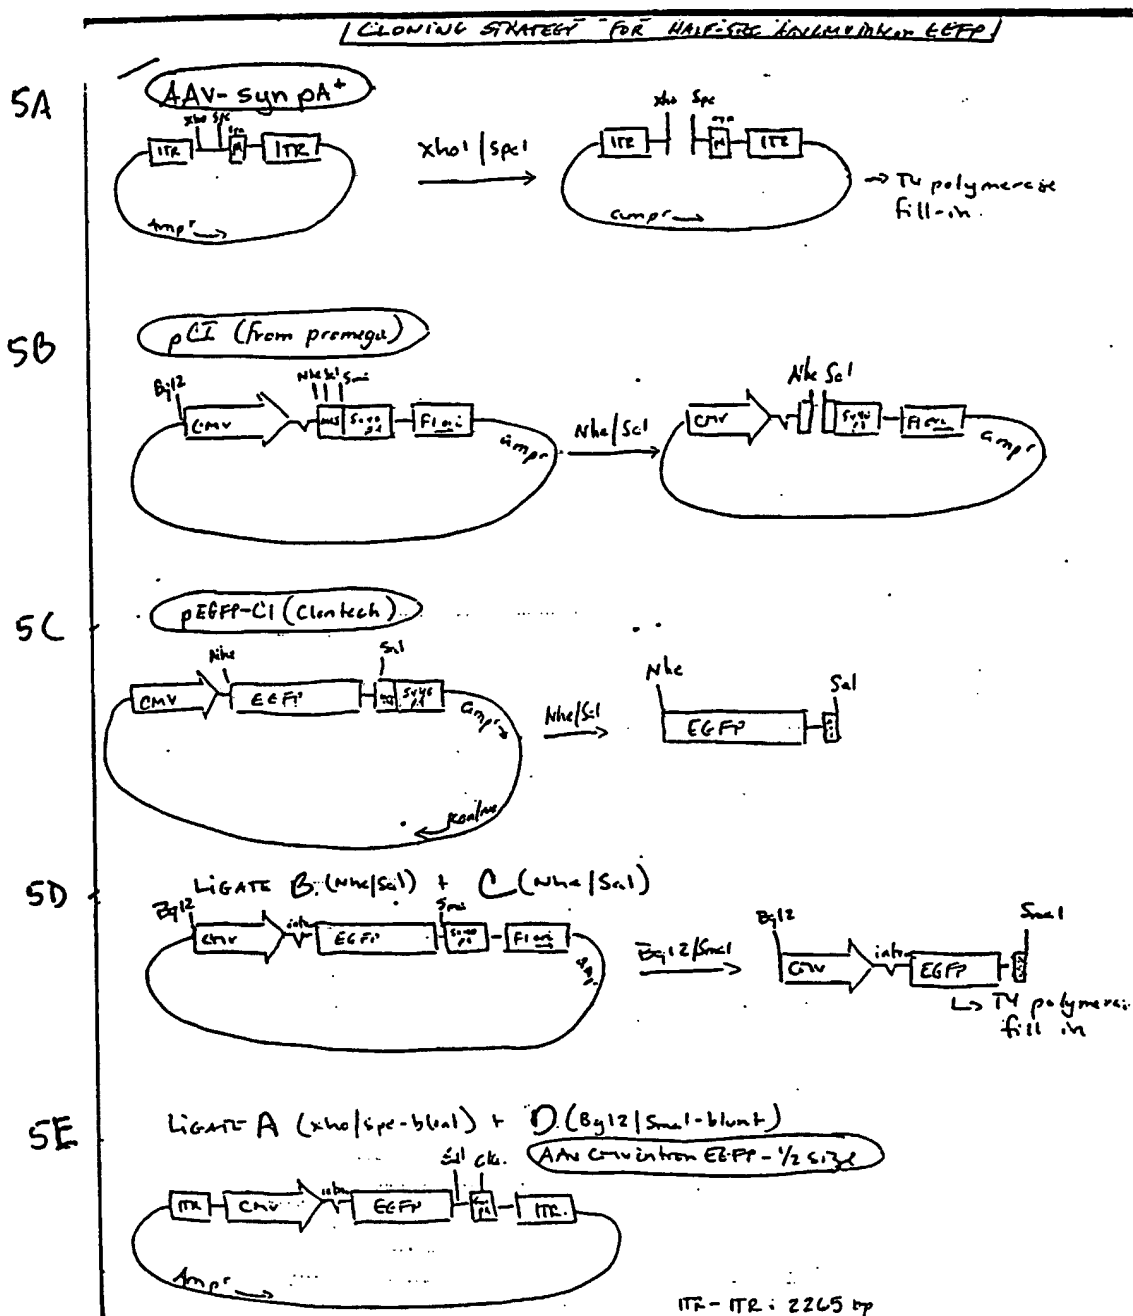 CLONING STRATEGY FOR HALF-SIZE EGFP
5A
AAV-syn pA+
Xho Spe
ITR PA ITR
Ampr
Xho1/Spe1
Xho Spe
ITR PA ITR
ampr
→ T4 polymerase
fill-in.
5B
pCI (from promega)
Bgl2
Nhe Sal Sma
CMV MCS SV40 pA F1 ori
ampr
Nhe/Sal
Nhe Sal
CMV SV40 pA F1 ori
ampr
5C
pEGFP-C1 (Clontech)
Nhe
Sal
CMV EGFP SV40 pA
ampr
Kan/neo
Nhe/Sal
Nhe
Sal
EGFP
5D
LIGATE B. (Nhe/Sal) + C (Nhe/Sal)
Bgl2
Sma
CMV intr EGFP SV40 pA F1 ori
Bgl2/Sma1
Bgl2
Sma1
CMV intr EGFP
↳ T4 polymerase
fill in
5E
LIGATE A (xho/spe-blunt) + D. (Bgl2/Sma1-blunt)
AAV CMV intron EGFP - 1/2 size
Sal Cla.
ITR CMV intr EGFP pA ITR.
Ampr
ITR-ITR: 2265 bp